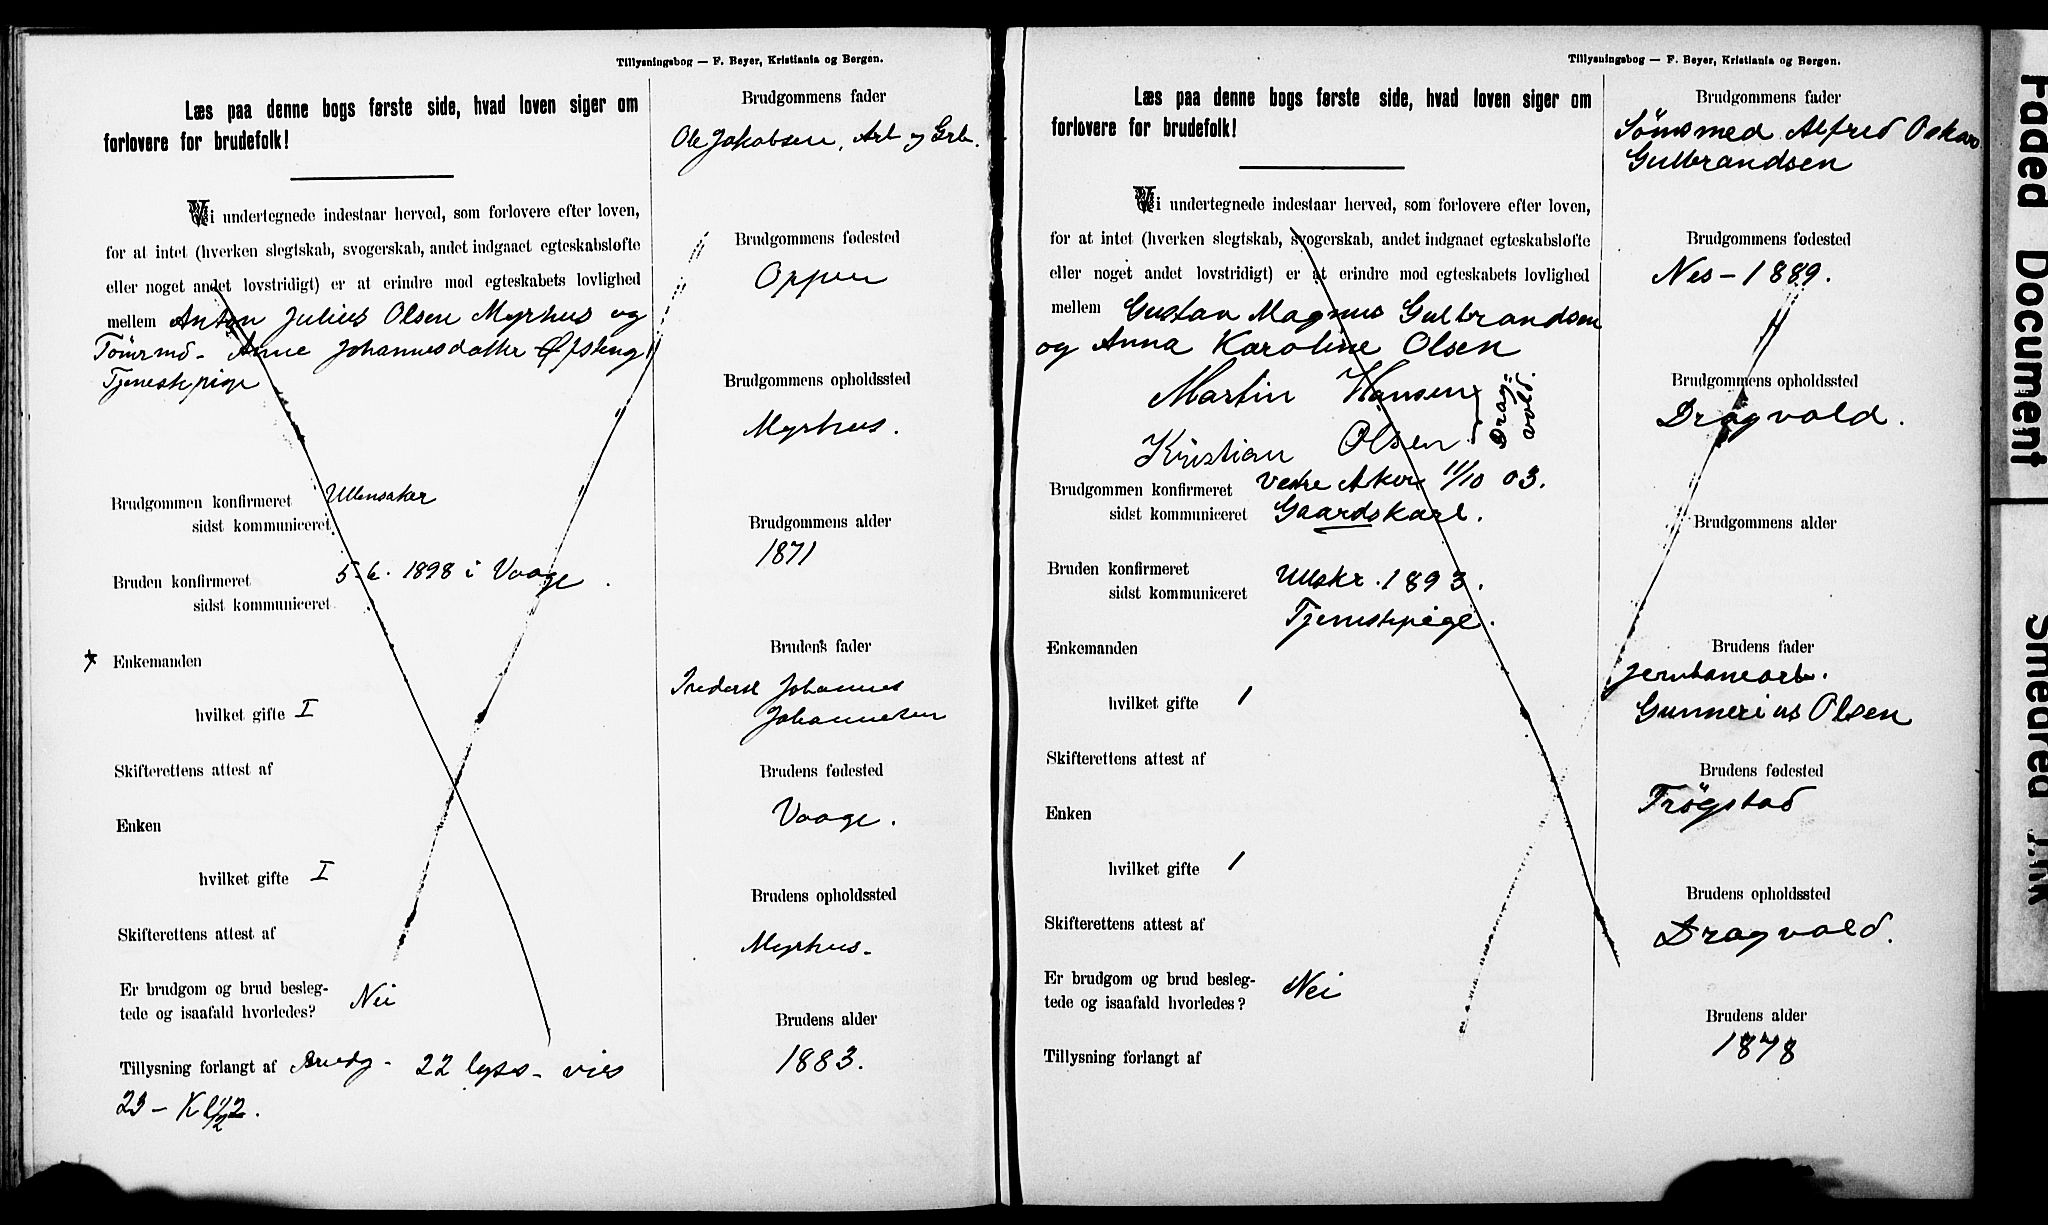 Tillysningsbog — F. Beyer, Kristiania og Bergen.
Læs paa denne bogs første side, hvad loven siger om
forlovere for brudefolk!
Vi undertegnede indestaar herved, som forlovere efter loven,
for at intet (hverken slegtskab, svogerskab, andet indgaaet egteskabsløfte
eller noget andet lovstridigt) er at erindre mod egteskabets lovlighed
mellem Anton Julius Olsen Myrhus og
Tömrmd - Anne Johannesdatter Øfsteng
Tjenestepige
Brudgommen konfirmeret Ullensaker
sidst kommuniceret
Bruden konfirmeret 5-6. 1898 i Vaage.
sidst kommuniceret
Enkemanden
hvilket gifte I
Skifterettens attest af
Enken
hvilket gifte I
Skifterettens attest af
Er brudgom og brud besleg-
tede og isaafald hvorledes? Nei
Tillysning forlangt af Brudg - 22 lyss - vies
23 - Kl
Brudgommens fader
Ole Jakobsen, Arb og Grb.
Brudgommens fødested
Oppen
Brudgommens opholdssted
Myrhus.
Brudgommens alder
1871
Brudens fader
Frederik Johannes
Johannesen
Brudens fødested
Vaage.
Brudens opholdssted
Myrhus-
Brudens alder
1883.
Tillysningsbog — F. Beyer, Kristiania og Bergen.
Læs paa denne bogs første side, hvad loven siger om
forlovere for brudefolk!
Vi undertegnede indestaar herved, som forlovere efter loven,
for at intet (hverken slegtskab, svogerskab, andet indgaaet egteskabsløfte
eller noget andet lovstridigt) er at erindre mod egteskabets lovlighed
mellem Gustav Magnus Gulbrandsen
og Anna Karoline Olsen
Martin Hansen
Kristian Olsen
Drag-
vold.
Brudgommen konfirmeret Vestre Aker 11/10 03.
sidst kommuniceret Gaardskarl.
Bruden konfirmeret Ullskr. 1893.
sidst kommuniceret
Tjenestepige.
Enkemanden
hvilket gifte 1
Skifterettens attest af
Enken
hvilket gifte 1
Skifterettens attest af
Er brudgom og brud besleg-
tede og isaafald hvorledes? Nei
Tillysning forlangt af
Brudgommens fader
Sömsmed Alfred Oskar
Gulbrandsen
Brudgommens fødested
Nes - 1889.
Brudgommens opholdssted
Dragvold.
Brudgommens alder
Brudens fader
jernbanearb.
Gunnerius Olsen
Brudens fødested
Trögstad
Brudens opholdssted
Dragvold.
Brudens alder
1878
Faded Document
Smeared Ink